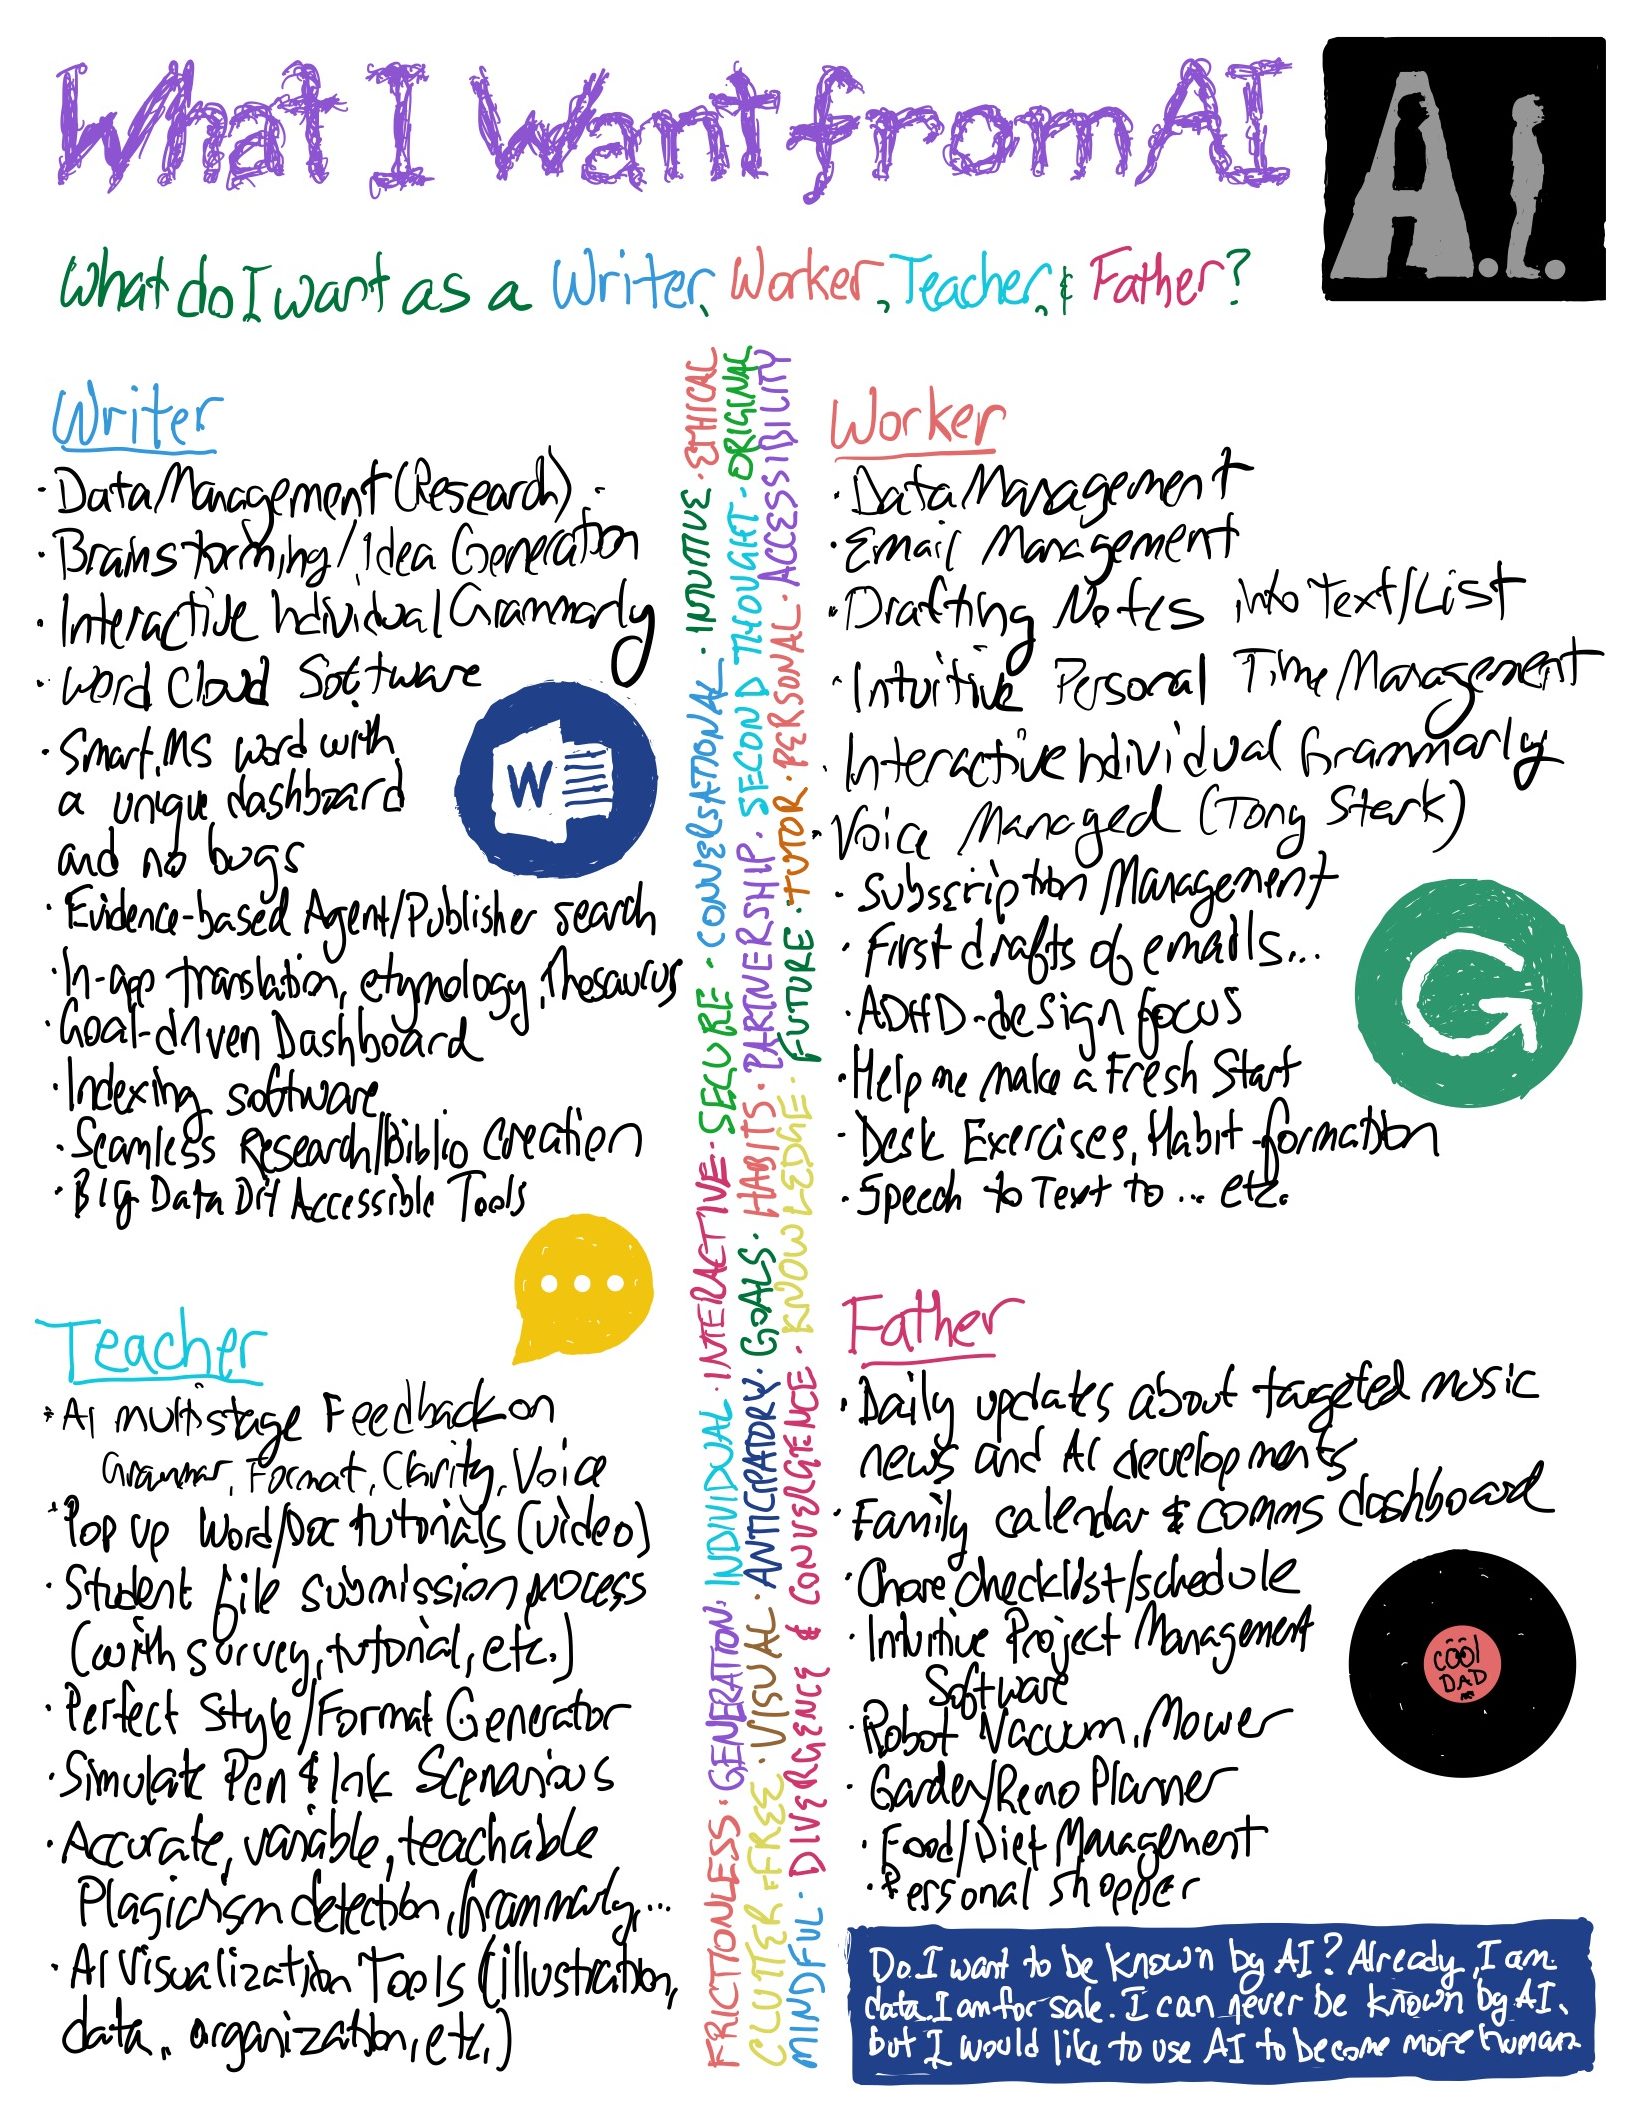 What I Want from AI
A.I.
What do I want as a Writer, Worker, Teacher, & Father?
Writer
· Data Management (Research)
· Brainstorming/Idea Generation
· Interactive Individual Grammarly
· Word Cloud Software
· Smart MS Word with
a unique dashboard
and no bugs
W
· Evidence-based Agent/Publisher search
· In-app translation, etymology, Thesaurus
· Goal-driven Dashboard
· Indexing software
· Seamless Research/Biblio Creation
· Big Data DIY Accessible Tools
FRICTIONLESS · GENERATION · INDIVIDUAL · INTERACTIVE · SECURE · CONVERSATIONAL · INTUITIVE · ETHICAL
CLUTTER FFREE · VISUAL · ANTICIPATORY · GOALS · HABITS · PARTNERSHIP · SECOND THOUGHT · ORIGINAL
MINDFUL · DIVERGENCE & CONVERGENCE · KNOWLEDGE · FUTURE · TUTOR · PERSONAL · ACCESSIBILITY
Worker
· Data Management
· Email Management
· Drafting Notes into Text/List
· Intuitive Personal Time Management
· Interactive Individual Grammarly
· Voice Managed (Tony Stark)
· Subscription Management
· First drafts of emails...
· ADHD-design focus
· Help me make a Fresh Start
· Desk Exercises, Habit-formation
· Speech to Text to ... etc.
G
Teacher
· AI multistage Feedback on
Grammar, Format, Clarity, Voice
· Pop up Word/Doc tutorials (video)
· Student file submission process
(with survey, tutorial, etc.)
· Perfect Style/Format Generator
· Simulate Pen & Ink Scenarious
· Accurate, variable, teachable
Plagiarism detection, Grammarly,...
· AI Visualization Tools (illustration,
data, organization, etc.)
Father
· Daily updates about targeted music
news and AI developments
· Family calendar & comms dashboard
· Chore checklist/schedule
· Intuitive Project Management
Software
· Robot Vacuum, Mower
· Garden/Reno Planner
· Food/Diet Management
· Personal Shopper
COOL
DAD
Do I want to be known by AI? Already, I am
data. I am for sale. I can never be known by AI.
but I would like to use AI to become more human.